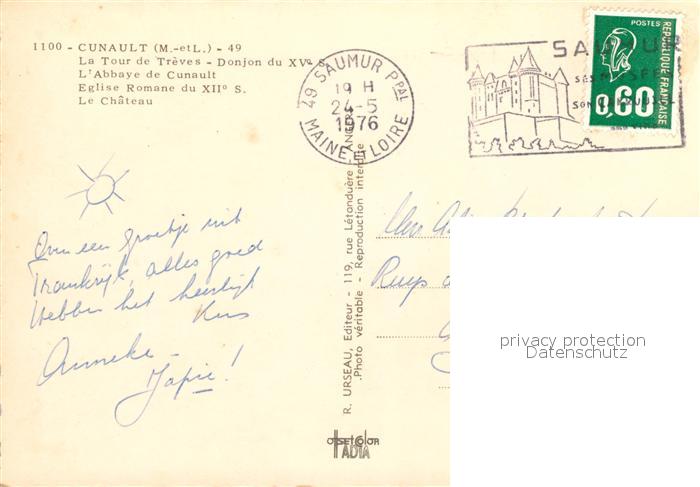 1100 - CUNAULT (M.-et-L.) - 49
La Tour de Trèves - Donjon du XVe S.
L'Abbaye de Cunault
Eglise Romane du XIIe S.
Le Château
49 SAUMUR PPAL
19 H
24-5
1976
MAINE ET LOIRE
SAUMUR
POSTES
REPUBLIQUE FRANÇAISE
0,60
Even een groetje uit
Frankrijk, alles goed
Hebben het heerlijk
Kus
Anneke -
Japie!
R. URSEAU, Editeur - 119, rue Létonduère, ANGERS
Photo véritable - Reproduction interdite
OFFSET COLOR
privacy protection
Datenschutz